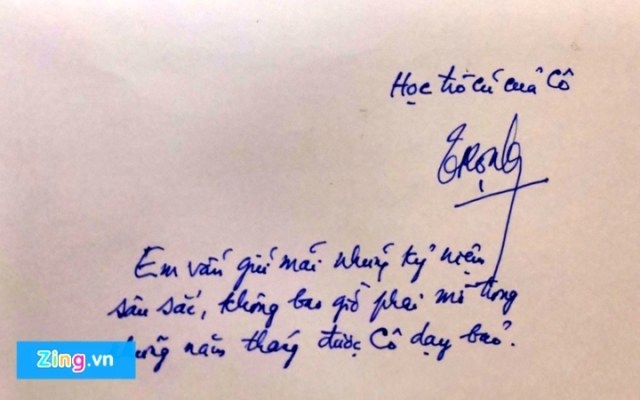 Học trò cũ của Cô
Trọng
Em vẫn giữ mãi những kỷ niệm
sâu sắc, không bao giờ phai mờ trong
những năm tháng được Cô dạy bảo.
Zing.vn